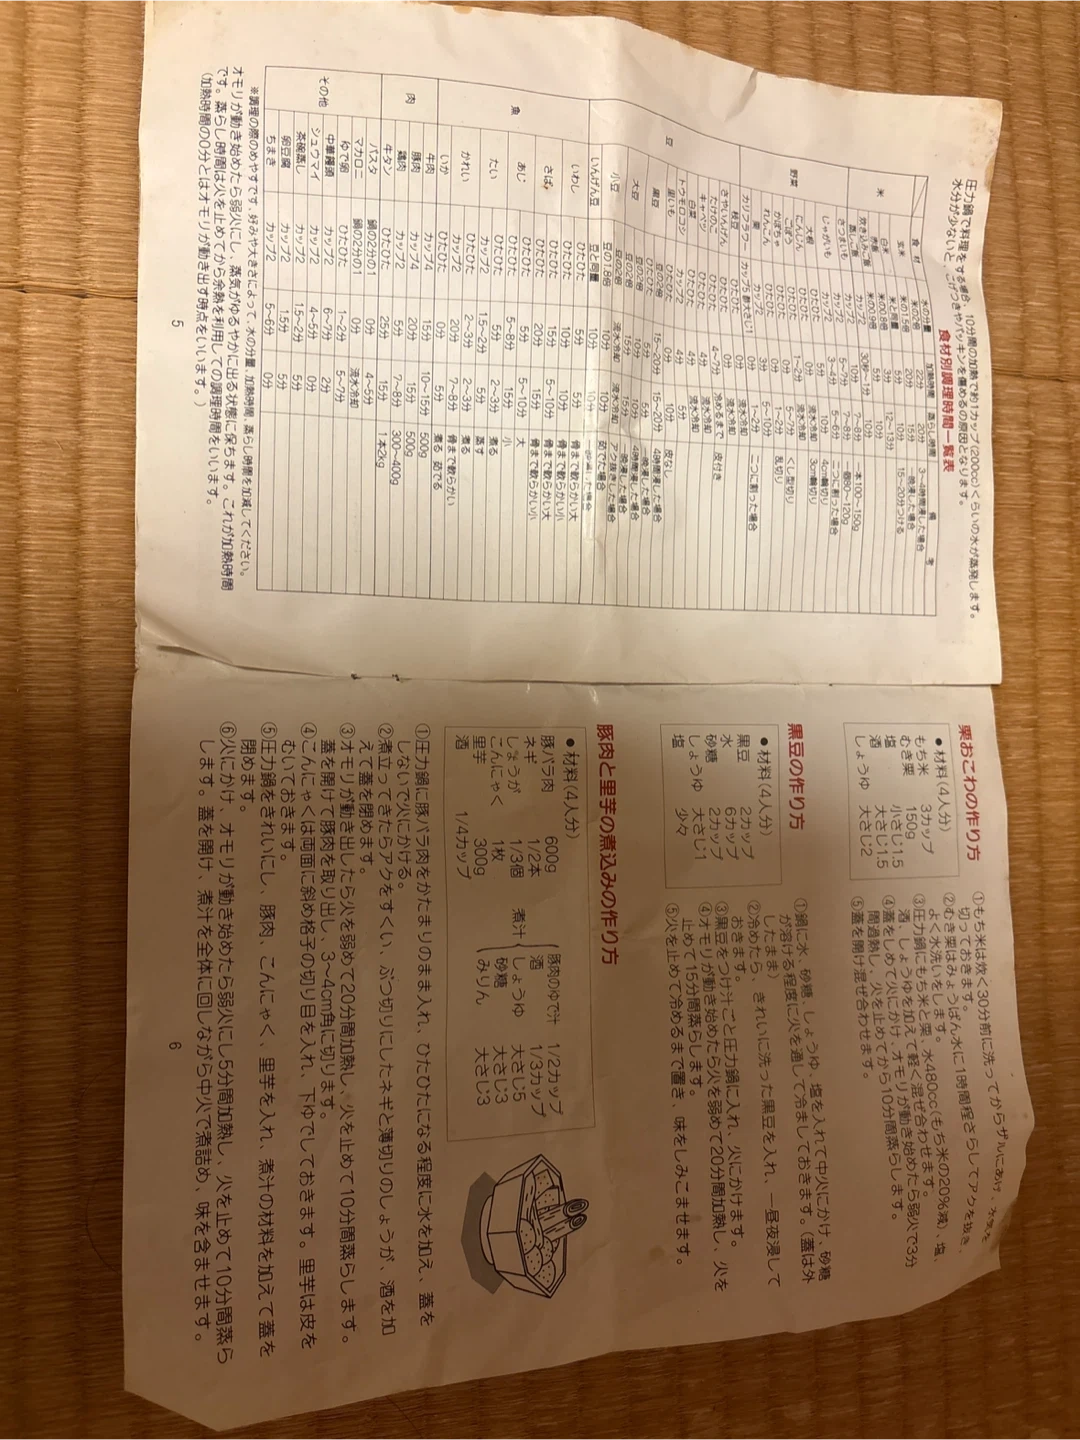 圧力鍋で料理をする場合、10分間の加熱で約1カップ(200cc)くらいの水が蒸発します。
水分が少ないと、こげつきやパッキンを傷めるの原因となります。
食材別調理時間一覧表
食材 水の分量 加熱時間 蒸らし時間 備考
米
玄米
白米 米と同量
赤飯
炊き込みご飯
蒸しご飯
野菜
さつまいも カップ2
じゃがいも カップ2
大根 ひたひた
にんじん ひたひた
ごぼう ひたひた
かぼちゃ カップ2
れんこん ひたひた
栗 カップ2
カリフラワー
枝豆
さやいんげん ひたひた
たけのこ ひたひた
キャベツ
白菜
トウモロコシ
里いも
豆
黒豆
大豆
小豆 豆の1.8倍 10分
いんげん豆 豆と同量 10分
魚
いわし ひたひた 5分 5分 骨まで軟らかい大
ひたひた 10分 10分 骨まで軟らかい小
さば ひたひた 15分 5~10分 骨まで軟らかい大
ひたひた 20分 10分 骨まで軟らかい小
あじ ひたひた 5分 5~10分 大
ひたひた 5~8分 15分 小
たい ひたひた 5分 2~3分 煮る
カップ2 1.5~2分 5分 蒸す
かれい ひたひた 2~3分 2~3分 煮る
ひたひた 20分 7~8分 骨まで軟らかい
いか ひたひた 0分 5分 煮る 茹でる
肉
牛肉 カップ4 15分 10~15分 500g
豚肉 カップ4 20分 15分 500g
鶏肉 カップ2 5分 7~8分 300~400g
牛タン ひたひた 25分 15分 1本2kg
その他
パスタ 鍋の2分の1 0分 4~5分
マカロニ 鍋の2分の1 0分 流水冷却
ゆで卵 ひたひた 1~2分 5~7分
中華饅頭 カップ2 6~7分 2分
シュウマイ カップ2 4~5分 0分
茶碗蒸し カップ2 1.5~2分 5分
卵豆腐 カップ2 1.5分 5分
ちまき カップ2 5~6分 0分
※調理の際のめやすです、好みや大きさによって、水の分量、加熱時間、蒸らし時間を加減してください。
オモリが動き始めたら弱火にし、蒸気がゆるやかに出る状態に保ちます。これが加熱時間
です。蒸らし時間は火を止めてから余熱を利用しての調理時間をいいます。
(加熱時間の0分とはオモリが動き出す時点をいいます。)
5
栗おこわの作り方
●材料(4人分)
もち米 3カップ
むき栗 150g
塩 小さじ1.5
酒 大さじ1.5
しょうゆ 大さじ2
①もち米は炊く30分前に洗ってからザルにあけ、水気を
切っておきます。
②むき栗はみょうばん水に1時間程さらしてアクを抜き、
よく水洗いをします。
③圧力鍋にもち米と栗、水480cc(もち米の20%減)、塩、
酒、しょうゆを加えて軽く混ぜ合わせます。
④蓋をしめて火にかけ、オモリが動き始めたら弱火で3分
間過熱し、火を止めてから10分間蒸らします。
⑤蓋を開け混ぜ合わせます。
黒豆の作り方
●材料(4人分)
黒豆 2カップ
水 6カップ
砂糖 2カップ
しょうゆ 大さじ1
塩 少々
①鍋に水、砂糖、しょうゆ、塩を入れて中火にかけ、砂糖
が溶ける程度に火を通して冷ましておきます。(蓋は外
したまま)
②冷めたら、きれいに洗った黒豆を入れ、一昼夜浸して
おきます。
③黒豆をつけ汁ごと圧力鍋に入れ、火にかけます。
④オモリが動き始めたら火を弱めて20分間加熱し、火を
止めて15分間蒸らします。
⑤火を止めて冷めるまで置き、味をしみこませます。
豚肉と里芋の煮込みの作り方
●材料(4人分)
豚バラ肉 600g
ネギ 1/2本
しょうが 1/3個
こんにゃく 1枚
里芋 300g
酒 1/4カップ
煮汁
豚肉のゆで汁 1/2カップ
酒 1/3カップ
しょうゆ 大さじ5
砂糖 大さじ3
みりん 大さじ3
①圧力鍋に豚バラ肉をかたまりのまま入れ、ひたひたになる程度に水を加え、蓋を
しないで火にかける。
②煮立ってきたらアクをすくい、ぶつ切りにしたネギと薄切りのしょうが、酒を加
えて蓋を閉めます。
③オモリが動き出したら火を弱めて20分間加熱し、火を止めて10分間蒸らします。
蓋を開けて豚肉を取り出し、3~4cm角に切ります。
④こんにゃくは両面に斜め格子の切り目を入れ、下ゆでしておきます。里芋は皮を
むいておきます。
⑤圧力鍋をきれいにし、豚肉、こんにゃく、里芋を入れ、煮汁の材料を加えて蓋を
閉めます。
⑥火にかけ、オモリが動き始めたら弱火にし5分間加熱し、火を止めて10分間蒸ら
します。蓋を開け、煮汁を全体に回しながら中火で煮詰め、味を含ませます。
6